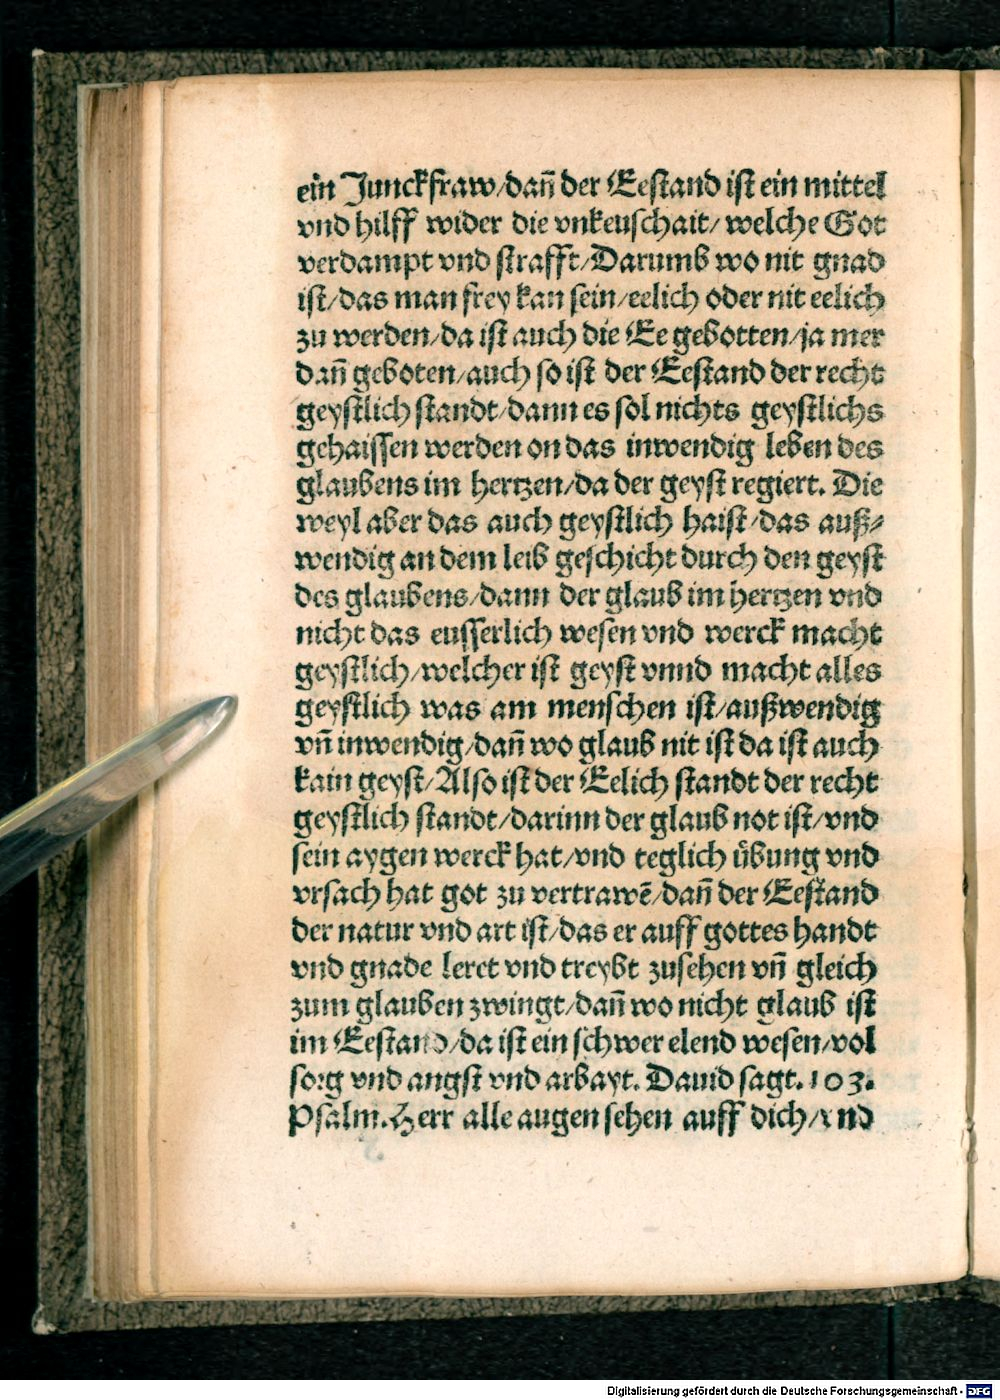 ein Junckfraw/dañ der Eestand ist ein mittel
vnd hilff wider die vnkeuschait/welche Got
verdampt vnd strafft/Darumb wo nit gnad
ist/das man frey kan sein/eelich oder nit eelich
zu werden/da ist auch die Ee gebotten/ja mer
dañ geboten/auch so ist der Eestand der recht
geystlich standt/dann es sol nichts geystlichs
gehaissen werden on das inwendig leben des
glaubens im hertzen/da der geyst regiert. Die
weyl aber das auch geystlich haist/das auß⸗
wendig an dem leib geschicht durch den geyst
des glaubens/dann der glaub im hertzen vnd
nicht das eusserlich wesen vnd werck macht
geystlich/welcher ist geyst vnnd macht alles
geystlich was am menschen ist/außwendig
vñ inwendig/dañ wo glaub nit ist da ist auch
kain geyst/Also ist der Eelich standt der recht
geystlich standt/darinn der glaub not ist/vnd
sein aygen werck hat/vnd teglich übung vnd
vrsach hat got zu vertrawē/dañ der Eestand
der natur vnd art ist/das er auff gottes handt
vnd gnade leret vnd treybt zusehen vñ gleich
zum glauben zwingt/dañ wo nicht glaub ist
im Eestand/da ist ein schwer elend wesen/vol
sorg vnd angst vnd arbayt. Dauid sagt.103.
Psalm.Herr alle augen sehen auff dich/vnd
Digitalisierung gefördert durch die Deutsche Forschungsgemeinschaft - DFG